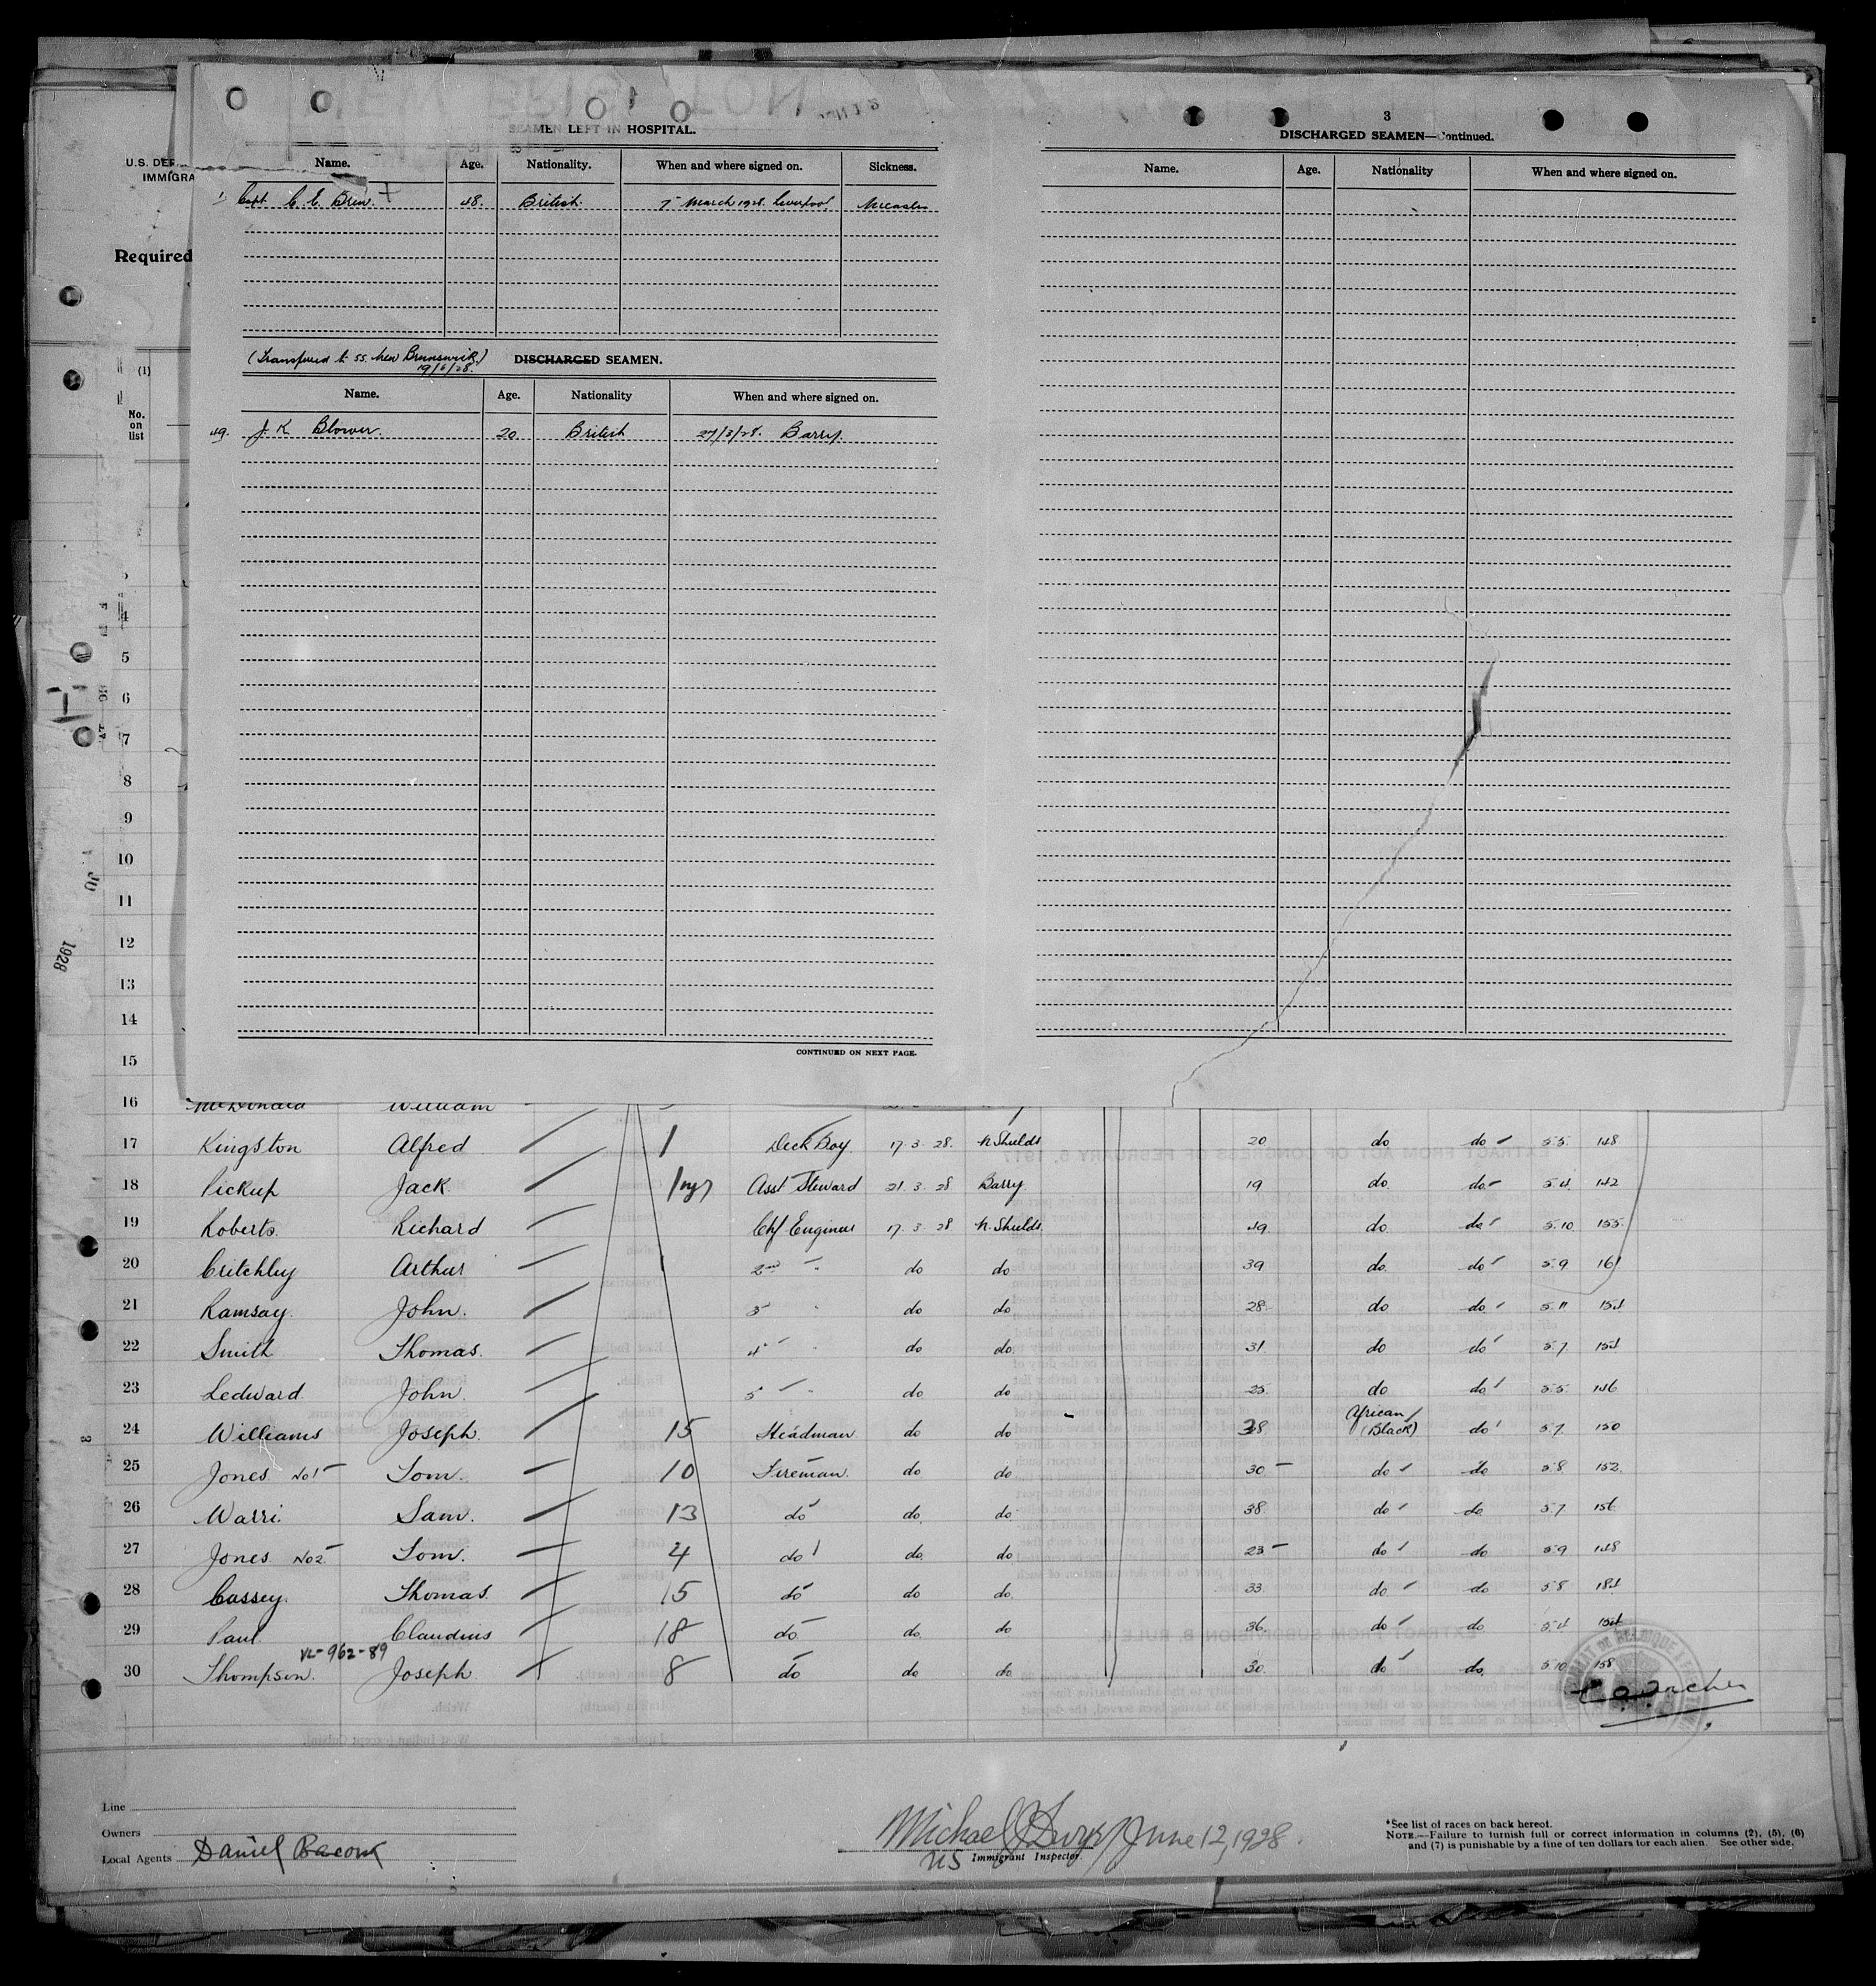 3
SEAMEN LEFT IN HOSPITAL.
DISCHARGED SEAMEN—Continued.
U.S. DEP
IMMIGRA
Name. Age. Nationality. When and where signed on. Sickness.
Name. Age. Nationality When and where signed on.
1 Capt. C. E. Brew. 48. British. 7 March 1928. Liverpool
Required
(Transferred to SS. New Brunswick)
19/6/28.
DISCHARGED SEAMEN.
(1)
Name. Age. Nationality When and where signed on.
No. on list
49. J. K Blower. 20 British 27/3/28. Barry.
4
5
6
7
8
9
10
11
12
1928
13
14
CONTINUED ON NEXT PAGE.
15
16 McDonald William
17 Kingston Alfred 1 Deck Boy 17.3.28. N. Shields 20 do do 5.5. 148
18 Pickup Jack 1 Asst Steward 21.3.28 Barry 19 do do 5.4. 142
19 Roberts Richard Chf Engineer 17.3.28 N. Shields. 49 do do 5.10 155
20 Critchley Arthur 2nd " do do 39 do do 5.9 161
21 Ramsay. John. 3 " do do 28 do do 5.11 154
22 Smith Thomas. 4 " do do 31 do do 5.7 154
23 Ledward John. 5 " do do 25 do do 5.5. 146
24 Williams Joseph. 15 Headman do do 38 African (Black) do 5.7 150
25 Jones No1 Tom. 10 Fireman. do do 30 do do 5.8 152
26 Warri. Sam. 13 do do do 38 do do 5.7 156
27 Jones No2 Tom. 4 do do do 23 do do 5.9 148
28 Cassey. Thomas. 15 do do do 33 do do 5.8 184
29 Paul Claudius 18 do do do 36. do do 5.4 154
VL-962-89
30 Thompson. Joseph 8 do do do 30. do do 5.10 158
Line
Owners
Local Agents Daniel Bacon
Michael J Dwyer June 12, 1928.
US Immigrant Inspector
*See list of races on back hereof.
NOTE.—Failure to furnish full or correct information in columns (2), (5), (6)
and (7) is punishable by a fine of ten dollars for each alien. See other side.